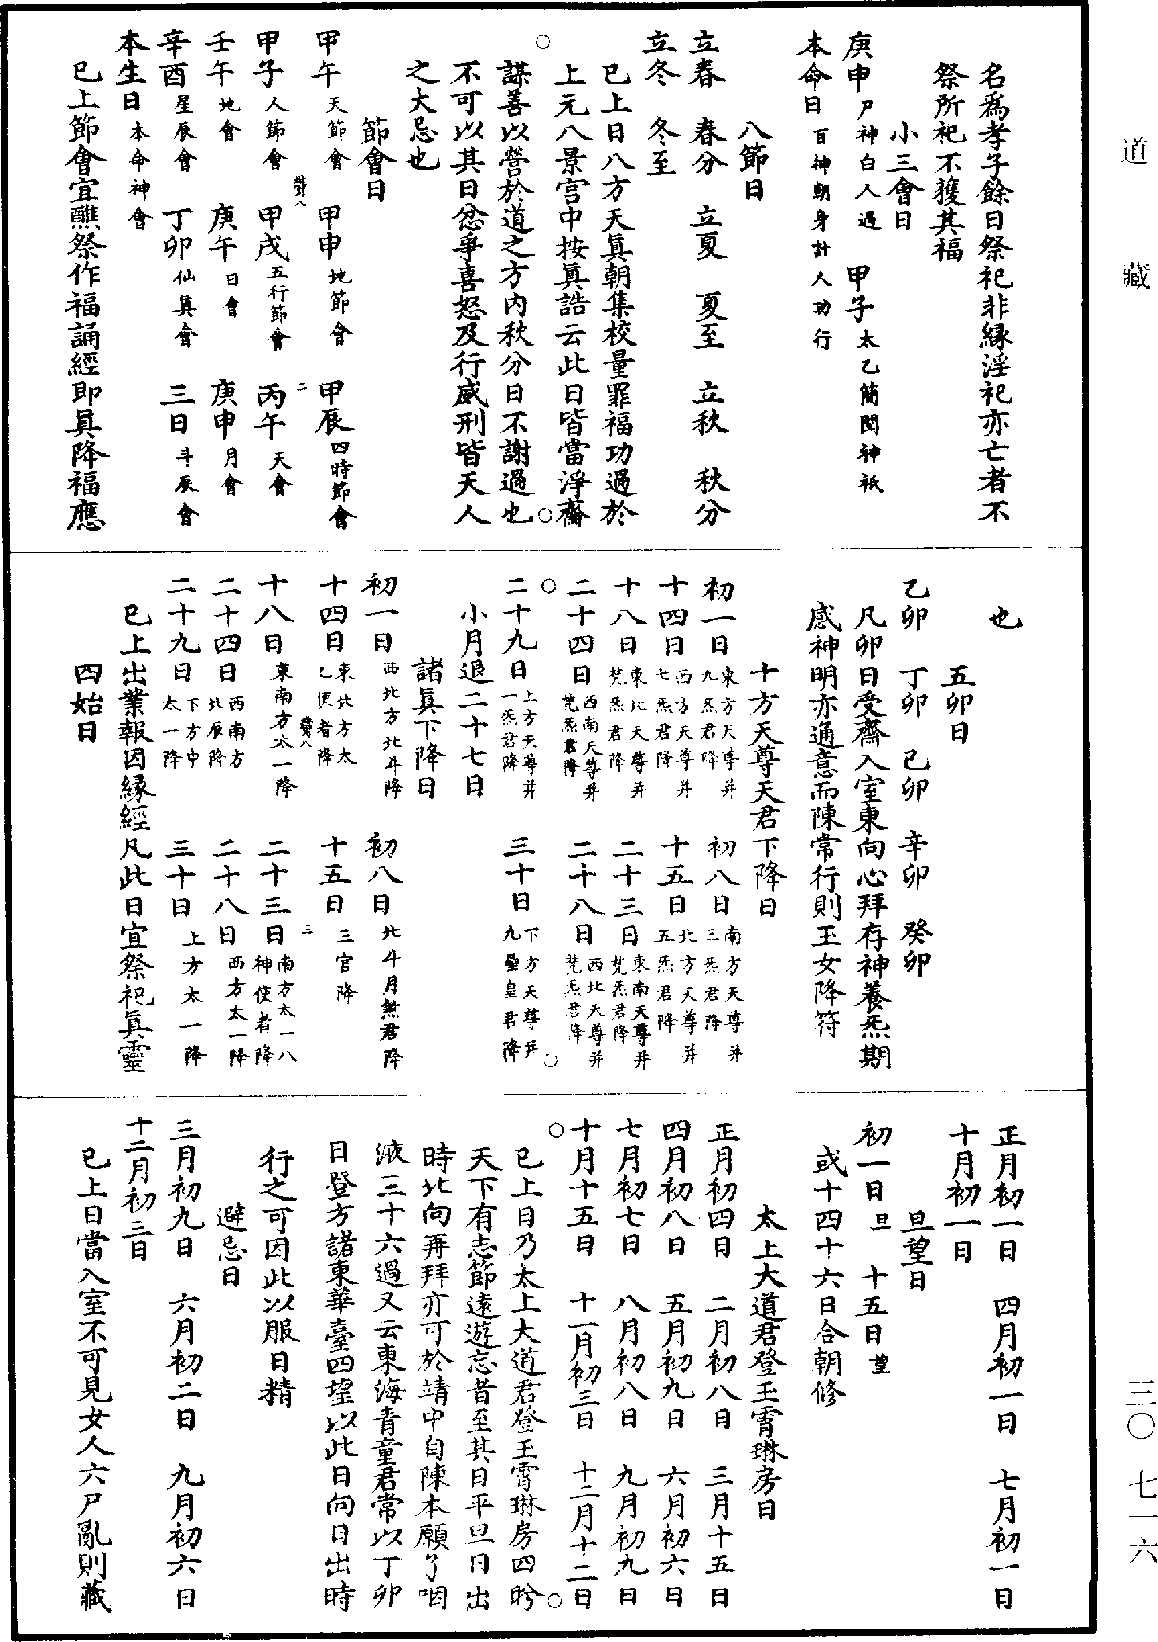 名爲孝子餘日祭祀非縁淫祀亦亡者不
祭所祀不獲其福
小三會日
庚申尸神白人過 甲子太乙簡閱神祇
本命日百神朝身計人功行
八節日
立春 春分 立夏 夏至 立秋 秋分
立冬 冬至
已上日八方天眞朝集校量罪福功過於
上元八景宫中按眞誥云此日皆當淨齋
謀善以營於道之方内秋分日不謝過也
不可以其日忿爭喜怒及行威刑皆天人
之大忌也
節會日
甲午天節會 甲申地節會 甲辰四時節會
甲子人節會 甲戌五行節會 丙午天會
壬午地會 庚午日會 庚申月會
辛酉星辰會 丁卯仙眞會 三日斗辰會
本生日本命神會
已上節會宜醮祭作福誦經即眞降福應
也
五卯日
乙卯 丁卯 己卯 辛卯 癸卯
凡卯日受齋入室東向心拜存神養炁期
感神明亦通意而陳常行則玉女降符
十方天尊天君下降日
初一日東方天尊并九炁君降 初八日南方天尊并三炁君降
十四日西方天尊并七炁君降 十五日北方天尊并五炁君降
十八日東北天尊并梵炁君降 二十三日東南天尊并梵炁君降
二十四日西南天尊并梵炁君降 二十八日西北天尊并梵炁君降
二十九日上方天尊并一炁君降 三十日下方天尊并九壘皇君降
小月退二十七日
諸眞下降日
初一日西北方北斗降 初八日北斗月煞君降
十四日東北方太乙使者降 十五日三官降
十八日東南方太一降 二十三日南方太一八神使者降
二十四日西南方北辰降 二十八日西方太一降
二十九日下方中太一降 三十日上方太一降
已上出業報因縁經凡此日宜祭祀眞靈
四始日
正月初一日 四月初一日 七月初一日
十月初一日
旦望日
初一日旦 十五日望
或十四十六日合朝修
太上大道君登玉霄琳房日
正月初四日 二月初八日 三月十五日
四月初八日 五月初九日 六月初六日
七月初七日 八月初八日 九月初九日
十月十五日 十一月初三日 十二月十二日
已上日乃太上大道君登玉霄琳房四眄
天下有志節遠遊忘者至其日平旦日出
時北向再拜亦可於靖中自陳本願了咽
液三十六過又云東海青童君常以丁卯
日登方諸東華臺四望以此日向日出時
行之可因此以服日精
避忌日
三月初九日 六月初二日 九月初六日
十二月初三日
已上日當入室不可見女人六尸亂則藏
道藏
三〇 七一六